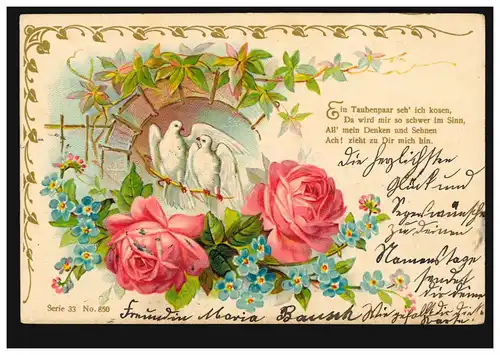 Ein Taubenpaar seh' ich kosen,
Da wird mir so schwer im Sinn,
All' mein Denken und Sehnen
Ach! zieht zu Dir mich hin.
Die herzlichsten
Glück und
Segenswünsche
zu deinem
Namenstage
sendet
dir deine
Serie 33 No. 850
Freundin Maria Bausch
Wie gefällt dir diese
Karte?